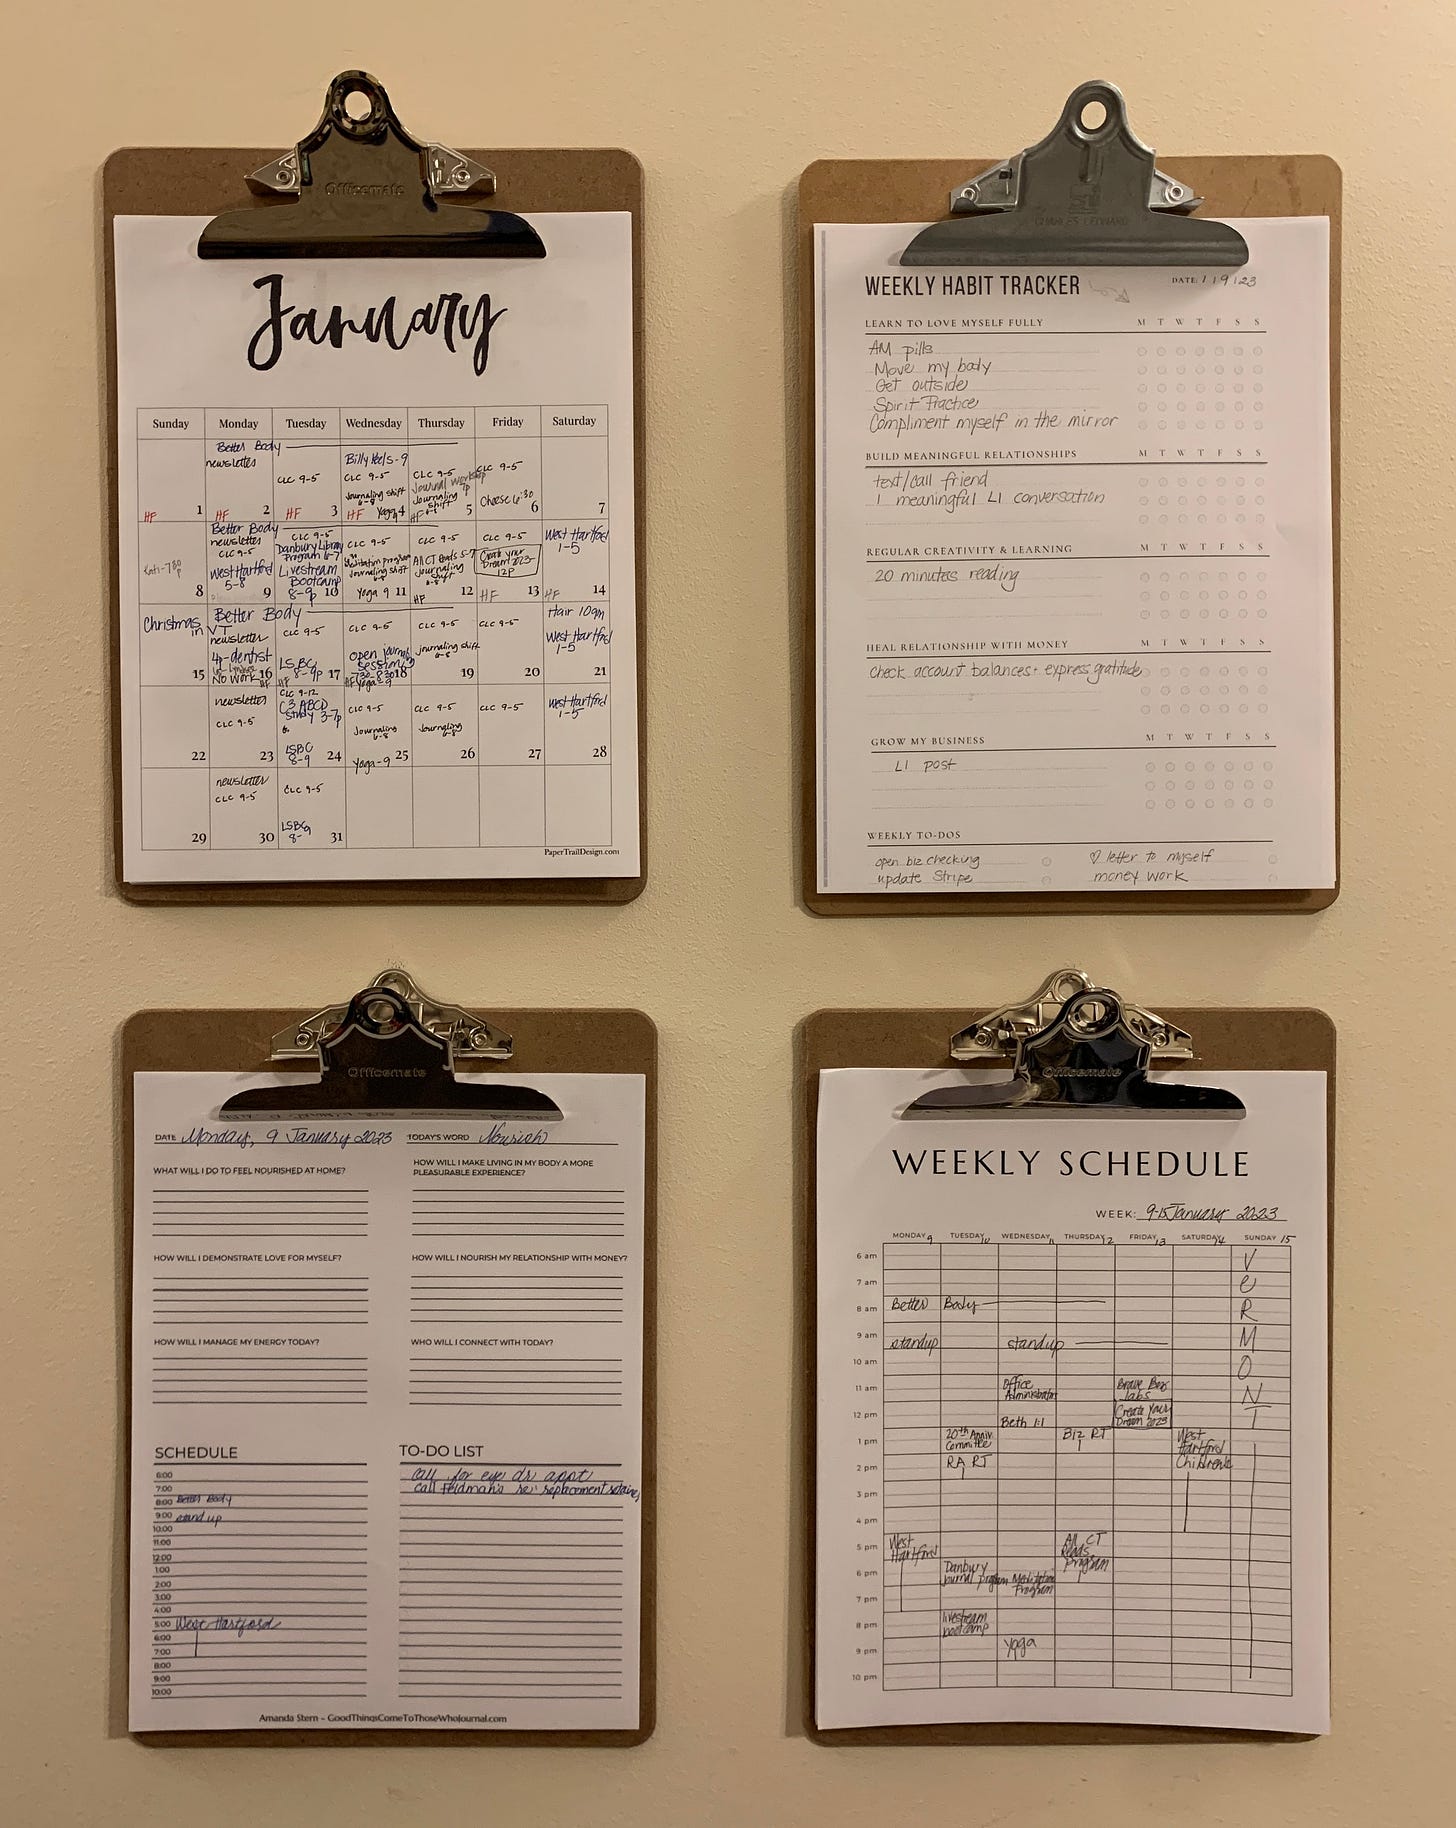 Officemate
January
Sunday Monday Tuesday Wednesday Thursday Friday Saturday
Better Body
newsletter
HF 1
HF 2
CLC 9-5
HF 3
CLC 9-5
Journaling shift
6-8
HF Yoga 9 4
CLC 9-5
Journal Workshop
Journaling
shift
HF 5
CLC 9-5
Cheese 6:30
6
7
Better Body
8
newsletter
CLC 9-5
West Hartford
5-8
9
CLC 9-5
Danbury Library
Program 6-7
Livestream
Bootcamp
8-9p 10
CLC 9-5
Meditation program
Journaling shift
Yoga 9 11
CLC 9-5
All CT Reads 5-7
Journaling
shift
HF 12
CLC 9-5
Create your
Dream 2023
12p
HF 13
West Hartford
1-5
HF 14
Christmas
in VT
15
Better Body
newsletter
4p-dentist
NO WORK 16
HF
CLC 9-5
LSBC
8-9p 17
HF
CLC 9-5
open journal
session
7:30-8:30 18
HF Yoga-9
CLC 9-5
journaling shift
6-8
19
CLC 9-5
20
Hair 10am
West Hartford
1-5
21
22
newsletter
CLC 9-5
23
CLC 9-12
C3 ABCD
Study 3-7p
LSBC
8-9 24
CLC 9-5
Journaling
6-8
Yoga-9 25
CLC 9-5
Journaling
6-8
26
CLC 9-5
27
West Hartford
1-5
28
29
newsletter
CLC 9-5
30
CLC 9-5
LSBC
8-9 31
PaperTrailDesign.com
CHARLES LEONARD
WEEKLY HABIT TRACKER DATE: 1/9/23
LEARN TO LOVE MYSELF FULLY M T W T F S S
AM pills
Move my body
Get outside
Spirit Practice
Compliment myself in the mirror
BUILD MEANINGFUL RELATIONSHIPS M T W T F S S
text/call friend
1 meaningful LI conversation
REGULAR CREATIVITY & LEARNING M T W T F S S
20 minutes reading
HEAL RELATIONSHIP WITH MONEY M T W T F S S
check account balances + express gratitude
GROW MY BUSINESS M T W T F S S
LI post
WEEKLY TO-DOS
open biz checking ♡ letter to myself
update Stripe money work
Officemate
DATE Monday, 9 January 2023 TODAY'S WORD Nourish
WHAT WILL I DO TO FEEL NOURISHED AT HOME?
HOW WILL I MAKE LIVING IN MY BODY A MORE
PLEASURABLE EXPERIENCE?
HOW WILL I DEMONSTRATE LOVE FOR MYSELF?
HOW WILL I NOURISH MY RELATIONSHIP WITH MONEY?
HOW WILL I MANAGE MY ENERGY TODAY?
WHO WILL I CONNECT WITH TODAY?
SCHEDULE
6:00
7:00
8:00 Better Body
9:00 stand up
10:00
11:00
12:00
1:00
2:00
3:00
4:00
5:00 West Hartford
6:00
7:00
8:00
9:00
10:00
TO-DO LIST
call for eye dr appt
call Feldman's re: replacement retainer
Amanda Stern ~ GoodThingsComeToThoseWhoJournal.com
Officemate
WEEKLY SCHEDULE
WEEK: 9-15 January 2023
MONDAY 9 TUESDAY 10 WEDNESDAY 11 THURSDAY 12 FRIDAY 13 SATURDAY 14 SUNDAY 15
6 am
7 am
8 am Better Body
9 am standup standup
10 am
11 am Office
Administrator
Brave Boz
labs
12 pm Beth 1:1
Create Your
Dream 2023
1 pm 20th Anniv
Committee
Biz RT
West
Hartford
Children's
2 pm RA RT
3 pm
4 pm
5 pm West
Hartford
All CT
Reads
Program
6 pm Danbury
Journal program
Meditation
Program
7 pm
8 pm livestream
bootcamp
9 pm Yoga
10 pm
VERMONT